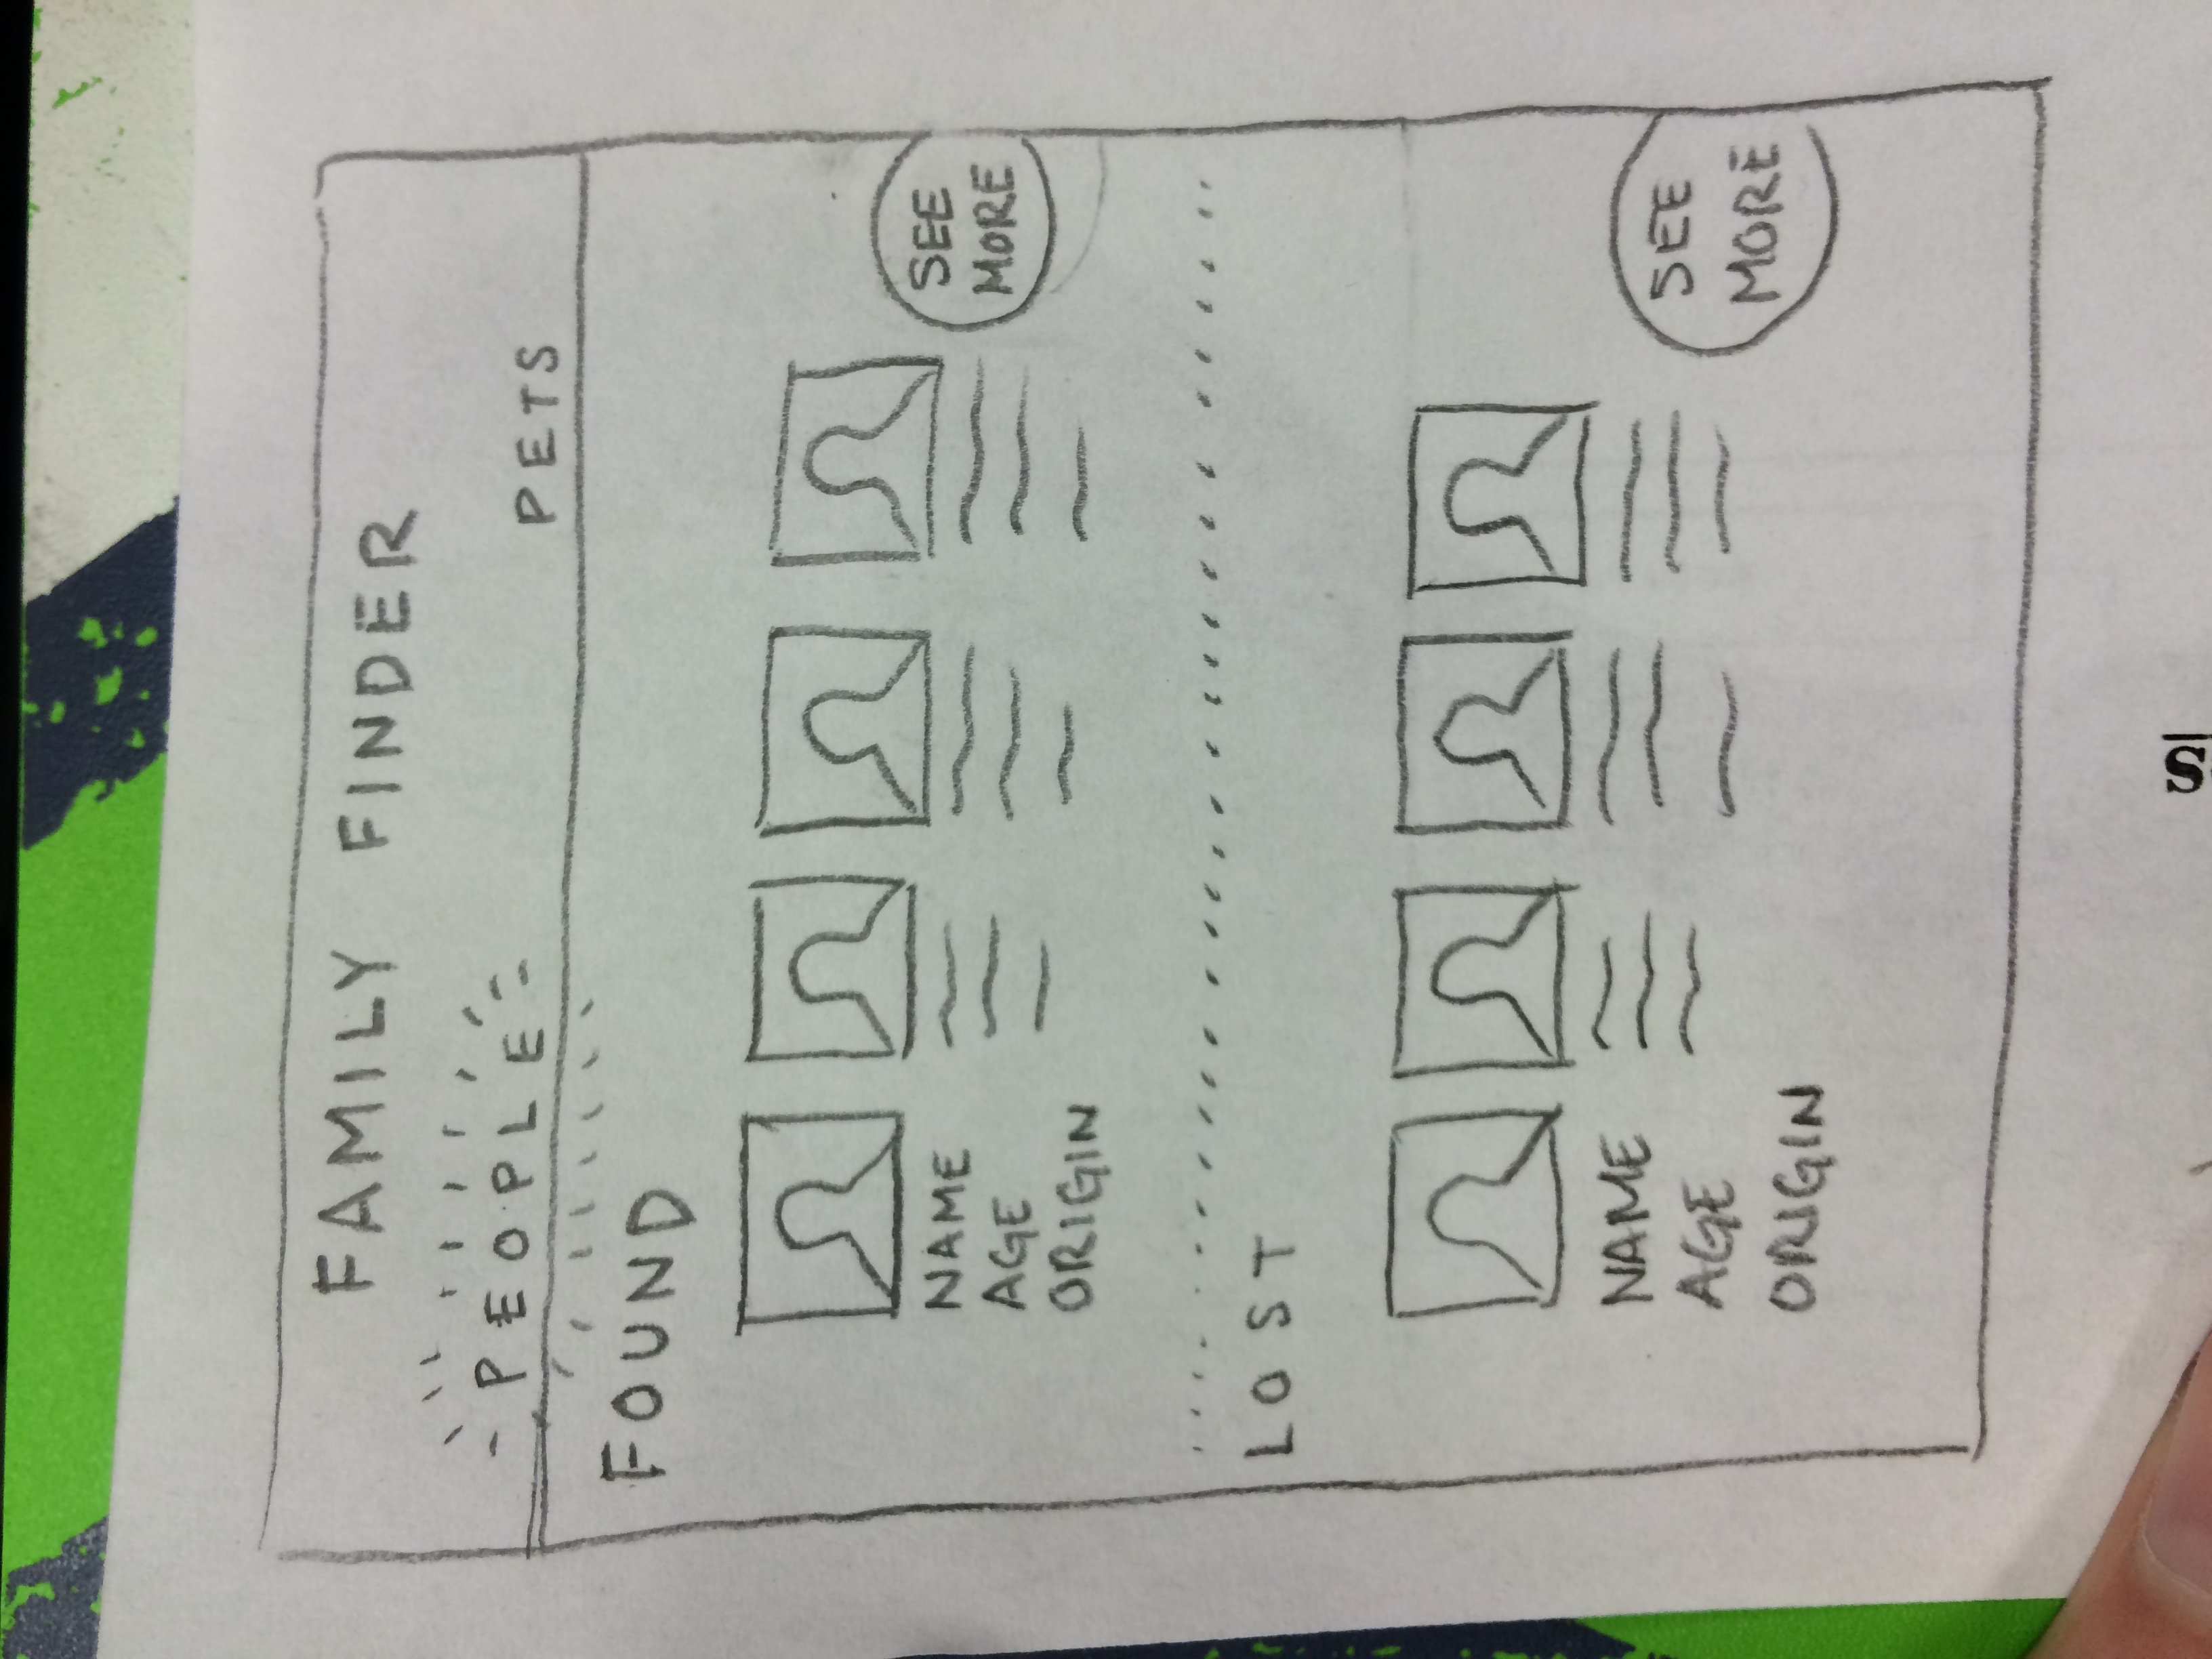 FAMILY FINDER
PEOPLE PETS
FOUND
NAME
AGE
ORIGIN
SEE
MORE
LOST
NAME
AGE
ORIGIN
SEE
MORE
S